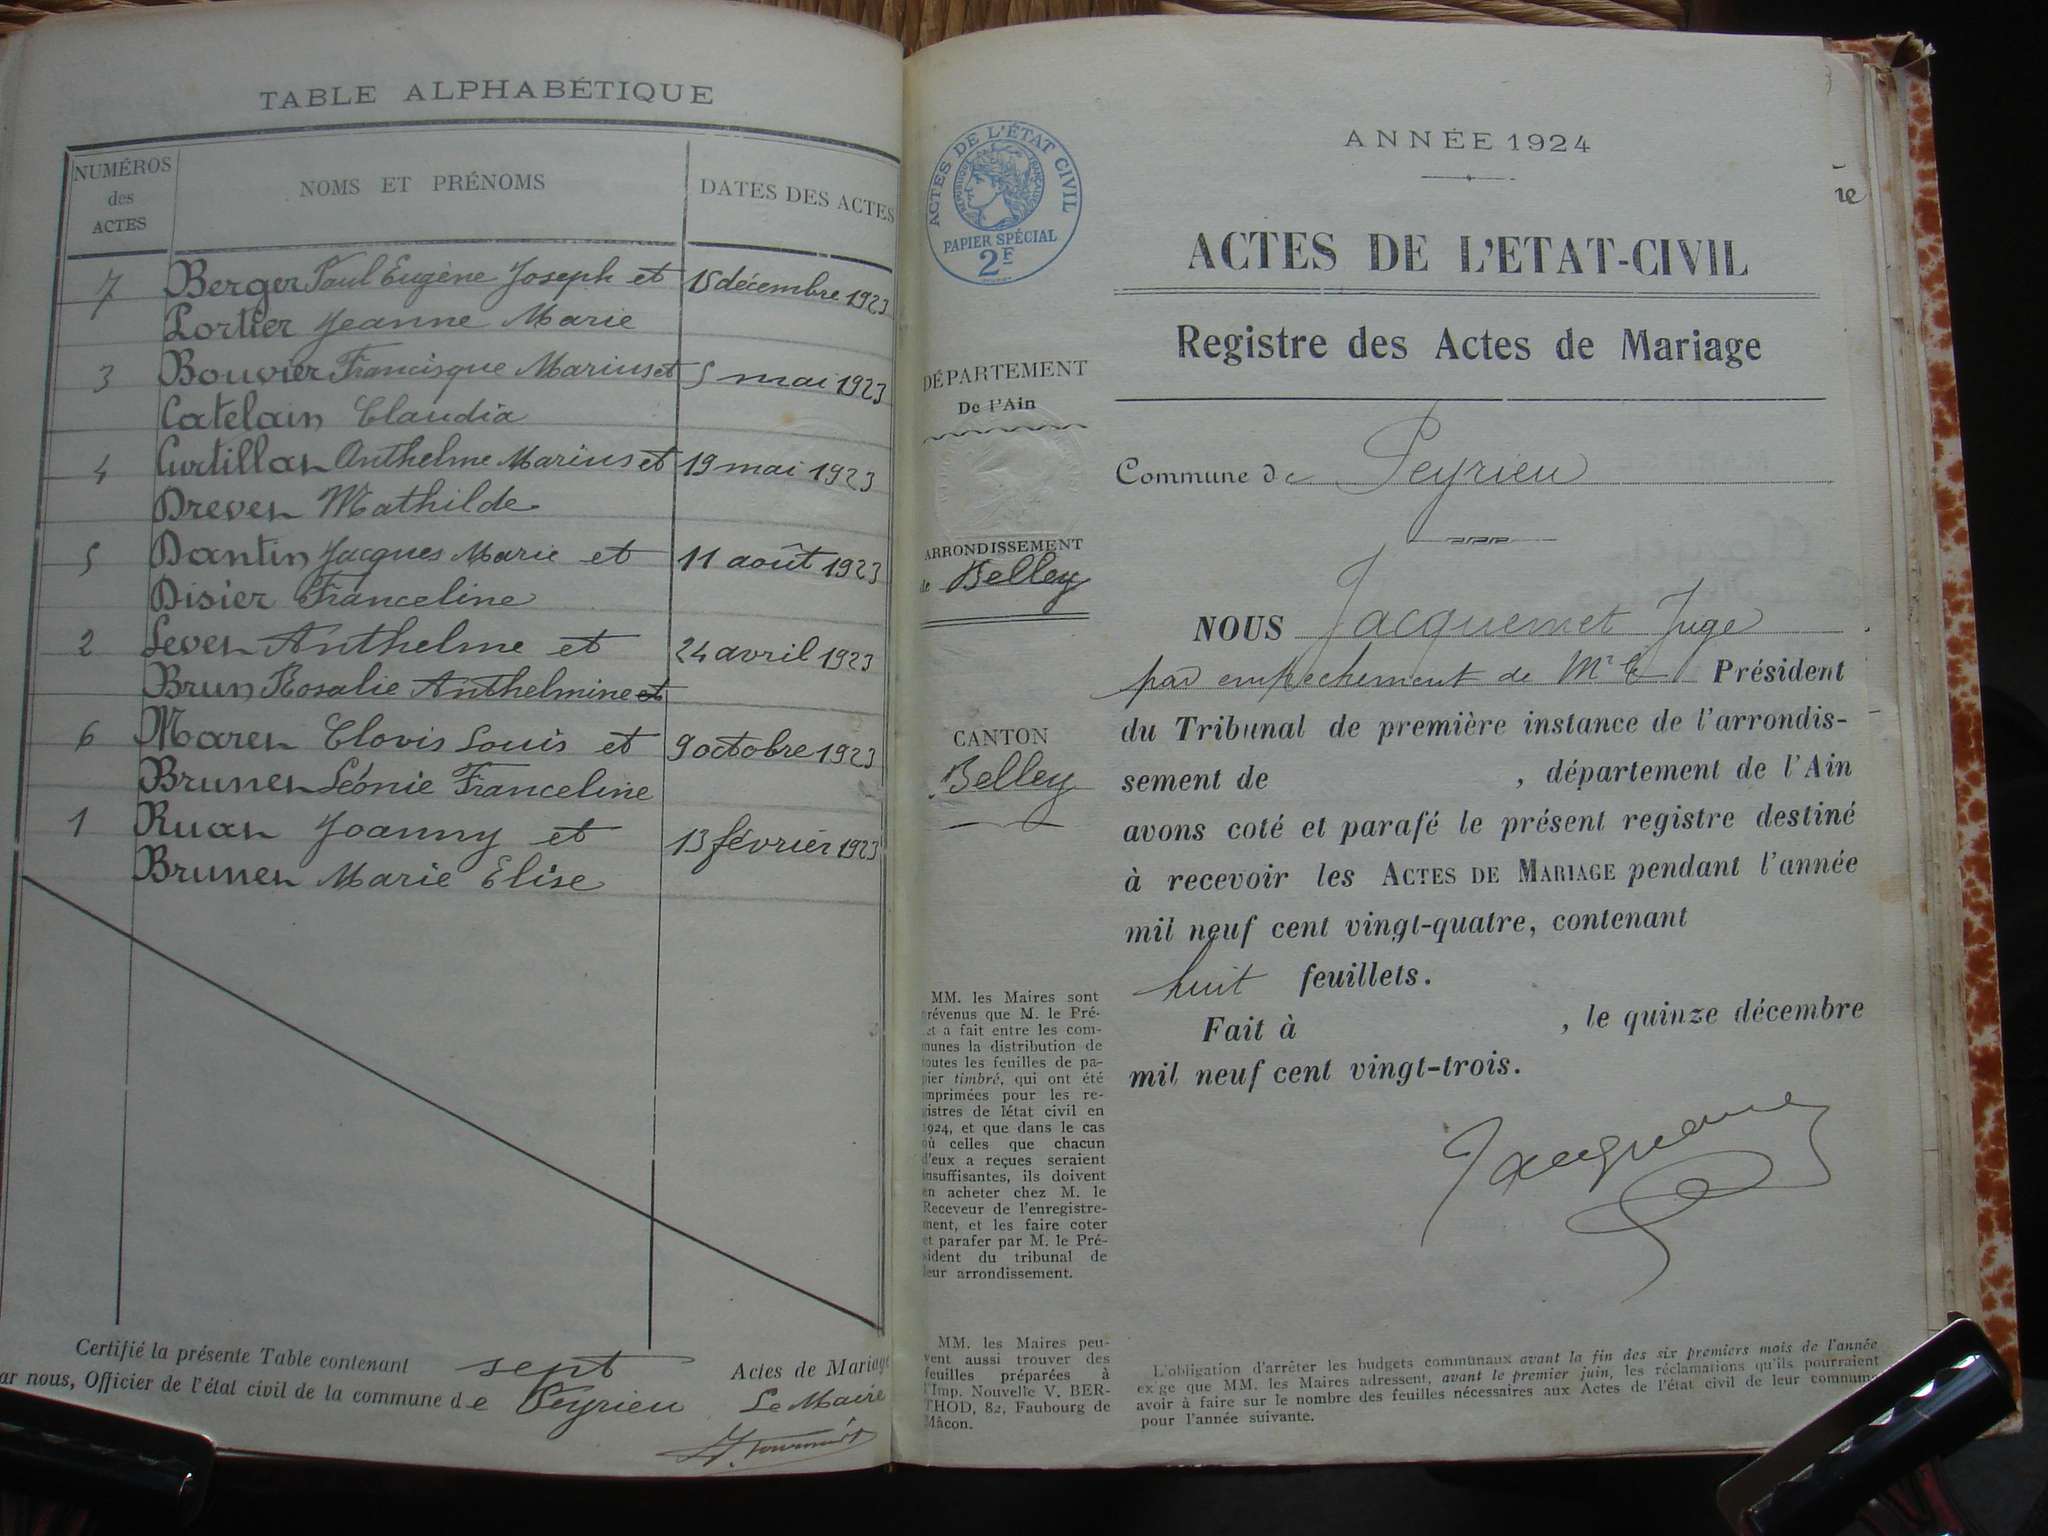 TABLE ALPHABÉTIQUE
NUMÉROS des ACTES
NOMS ET PRÉNOMS
DATES DES ACTES
7 Berger Paul Eugène Joseph et 15 décembre 1923
Portier Jeanne Marie
3 Bouvier Francisque Marius et 5 mai 1923
Catelain Claudia
4 Curtillat Anthelme Marius et 19 mai 1923
Drevet Mathilde
5 Dantin Jacques Marie et 11 août 1923
Disier Franceline
2 Levet Anthelme et 24 avril 1923
Brun Rosalie Anthelmine et
6 Maret Clovis Louis et 9 octobre 1923
Brunet Léonie Franceline
1 Ruat Joanny et 13 février 1923
Brunet Marie Elise
Certifié la présente Table contenant sept Actes de Mariage
ar nous, Officier de l'état civil de la commune de Peyrieu Le Maire
ACTES DE L'ÉTAT CIVIL
RÉPUBLIQUE FRANÇAISE
PAPIER SPÉCIAL
2F
DÉPARTEMENT
De l'Ain
ARRONDISSEMENT
de Belley
CANTON
Belley
MM. les Maires sont
prévenus que M. le Pré-
et a fait entre les com-
munes la distribution de
toutes les feuilles de pa-
pier timbré, qui ont été
imprimées pour les re-
gistres de létat civil en
1924, et que dans le cas
où celles que chacun
d'eux a reçues seraient
insuffisantes, ils doivent
en acheter chez M. le
Receveur de l'enregistre-
ment, et les faire coter
et parafer par M. le Pré-
sident du tribunal de
leur arrondissement.
MM. les Maires peu-
vent aussi trouver des
feuilles préparées à
l'Imp. Nouvelle V. BER-
THOD, 82, Faubourg de
Mâcon.
ANNÉE 1924
ACTES DE L'ETAT-CIVIL
Registre des Actes de Mariage
Commune de Peyrieu
NOUS Jacquemet Juge
par empechement de Mr le Président
du Tribunal de première instance de l'arrondis-
sement de , département de l'Ain
avons coté et parafé le présent registre destiné
à recevoir les ACTES DE MARIAGE pendant l'année
mil neuf cent vingt-quatre, contenant
huit feuillets.
Fait à , le quinze décembre
mil neuf cent vingt-trois.
L'obligation d'arrêter les budgets communaux avant la fin des six premiers mois de l'année
exige que MM. les Maires adressent, avant le premier juin, les réclamations qu'ils pourraient
avoir à faire sur le nombre des feuilles nécessaires aux Actes de l'état civil de leur commune
pour l'année suivante.